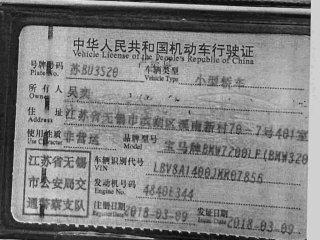 中华人民共和国机动车行驶证
Vehicle License of the People's Republic of China
号牌号码 苏BU3S20 车辆类型 小型轿车
Plate No. Vehicle Type
所有人 吴奕
Owner
住址 江苏省无锡市滨湖区溪南新村70-7号401室
Address
使用性质 非营运 品牌型号 宝马牌BMW7200LF(BMW320
Use Character Model
江苏省无锡 车辆识别代号 LBV8A1400JMK07856
VIN
市公安局交 发动机号码 4840E344
Engine No.
通警察支队 注册日期 2018-03-09 发证日期 2018-03-09
Register Date Issue Date